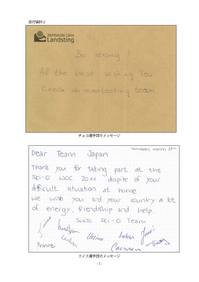 Jämtlands Läns
Landsting
Be strong!
All the best wishing You
Czech ski-orienteering team
チェコ選手団のメッセージ
Dear Team Japan
Thank you for taking part at the
Ski-O WOC 2011 despite of your
difficult situation at home.
We wish you and your country a lot
of energy, friendship and help.
Swiss Ski-O Team
スイス選手団のメッセージ